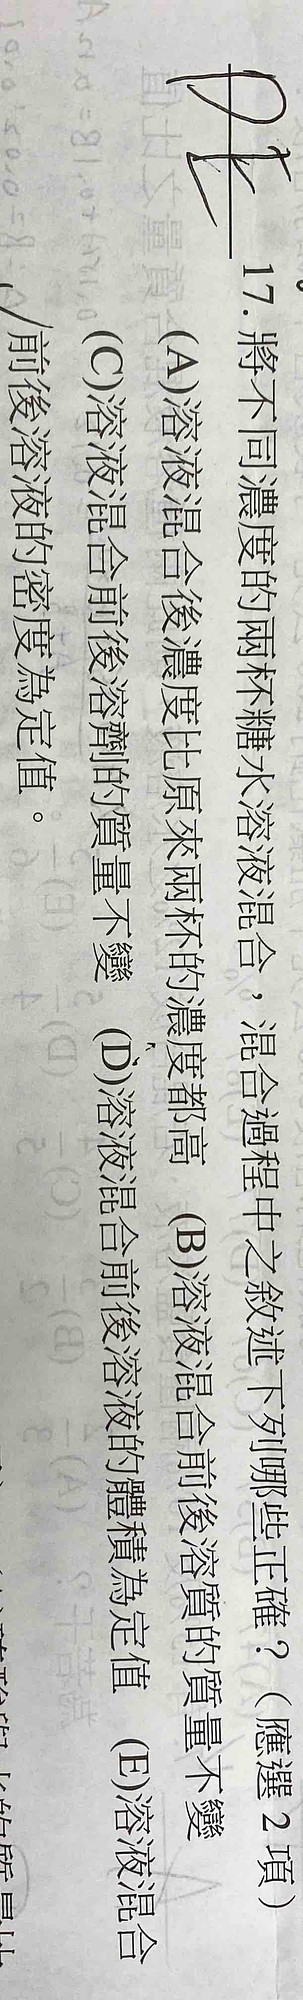 17. 將不同濃度的兩杯糖水溶液混合，混合過程中之敘述下列哪些正確？（應選 2 項）
(A)溶液混合後濃度比原來兩杯的濃度都高 (B)溶液混合前後溶質的質量不變
(C)溶液混合前後溶劑的質量不變 (D)溶液混合前後溶液的體積為定值 (E)溶液混合
前後溶液的密度為定值。